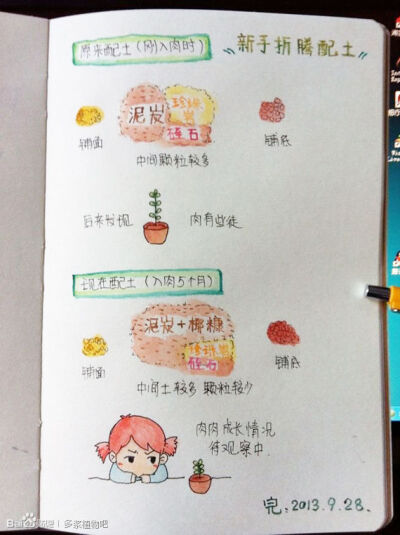 新手折腾配土
原来配土(刚入肉时)
泥炭
珍珠岩
硅石
铺面
铺底
中间颗粒较多
后来发现
肉有些徒
现在配土(入肉5个月)
泥炭+椰糠
珍珠岩
硅石
铺面
铺底
中间土较多 颗粒较少
肉肉成长情况
待观察中.
完.2013.9.28.
Baidu贴吧 | 多浆植物吧